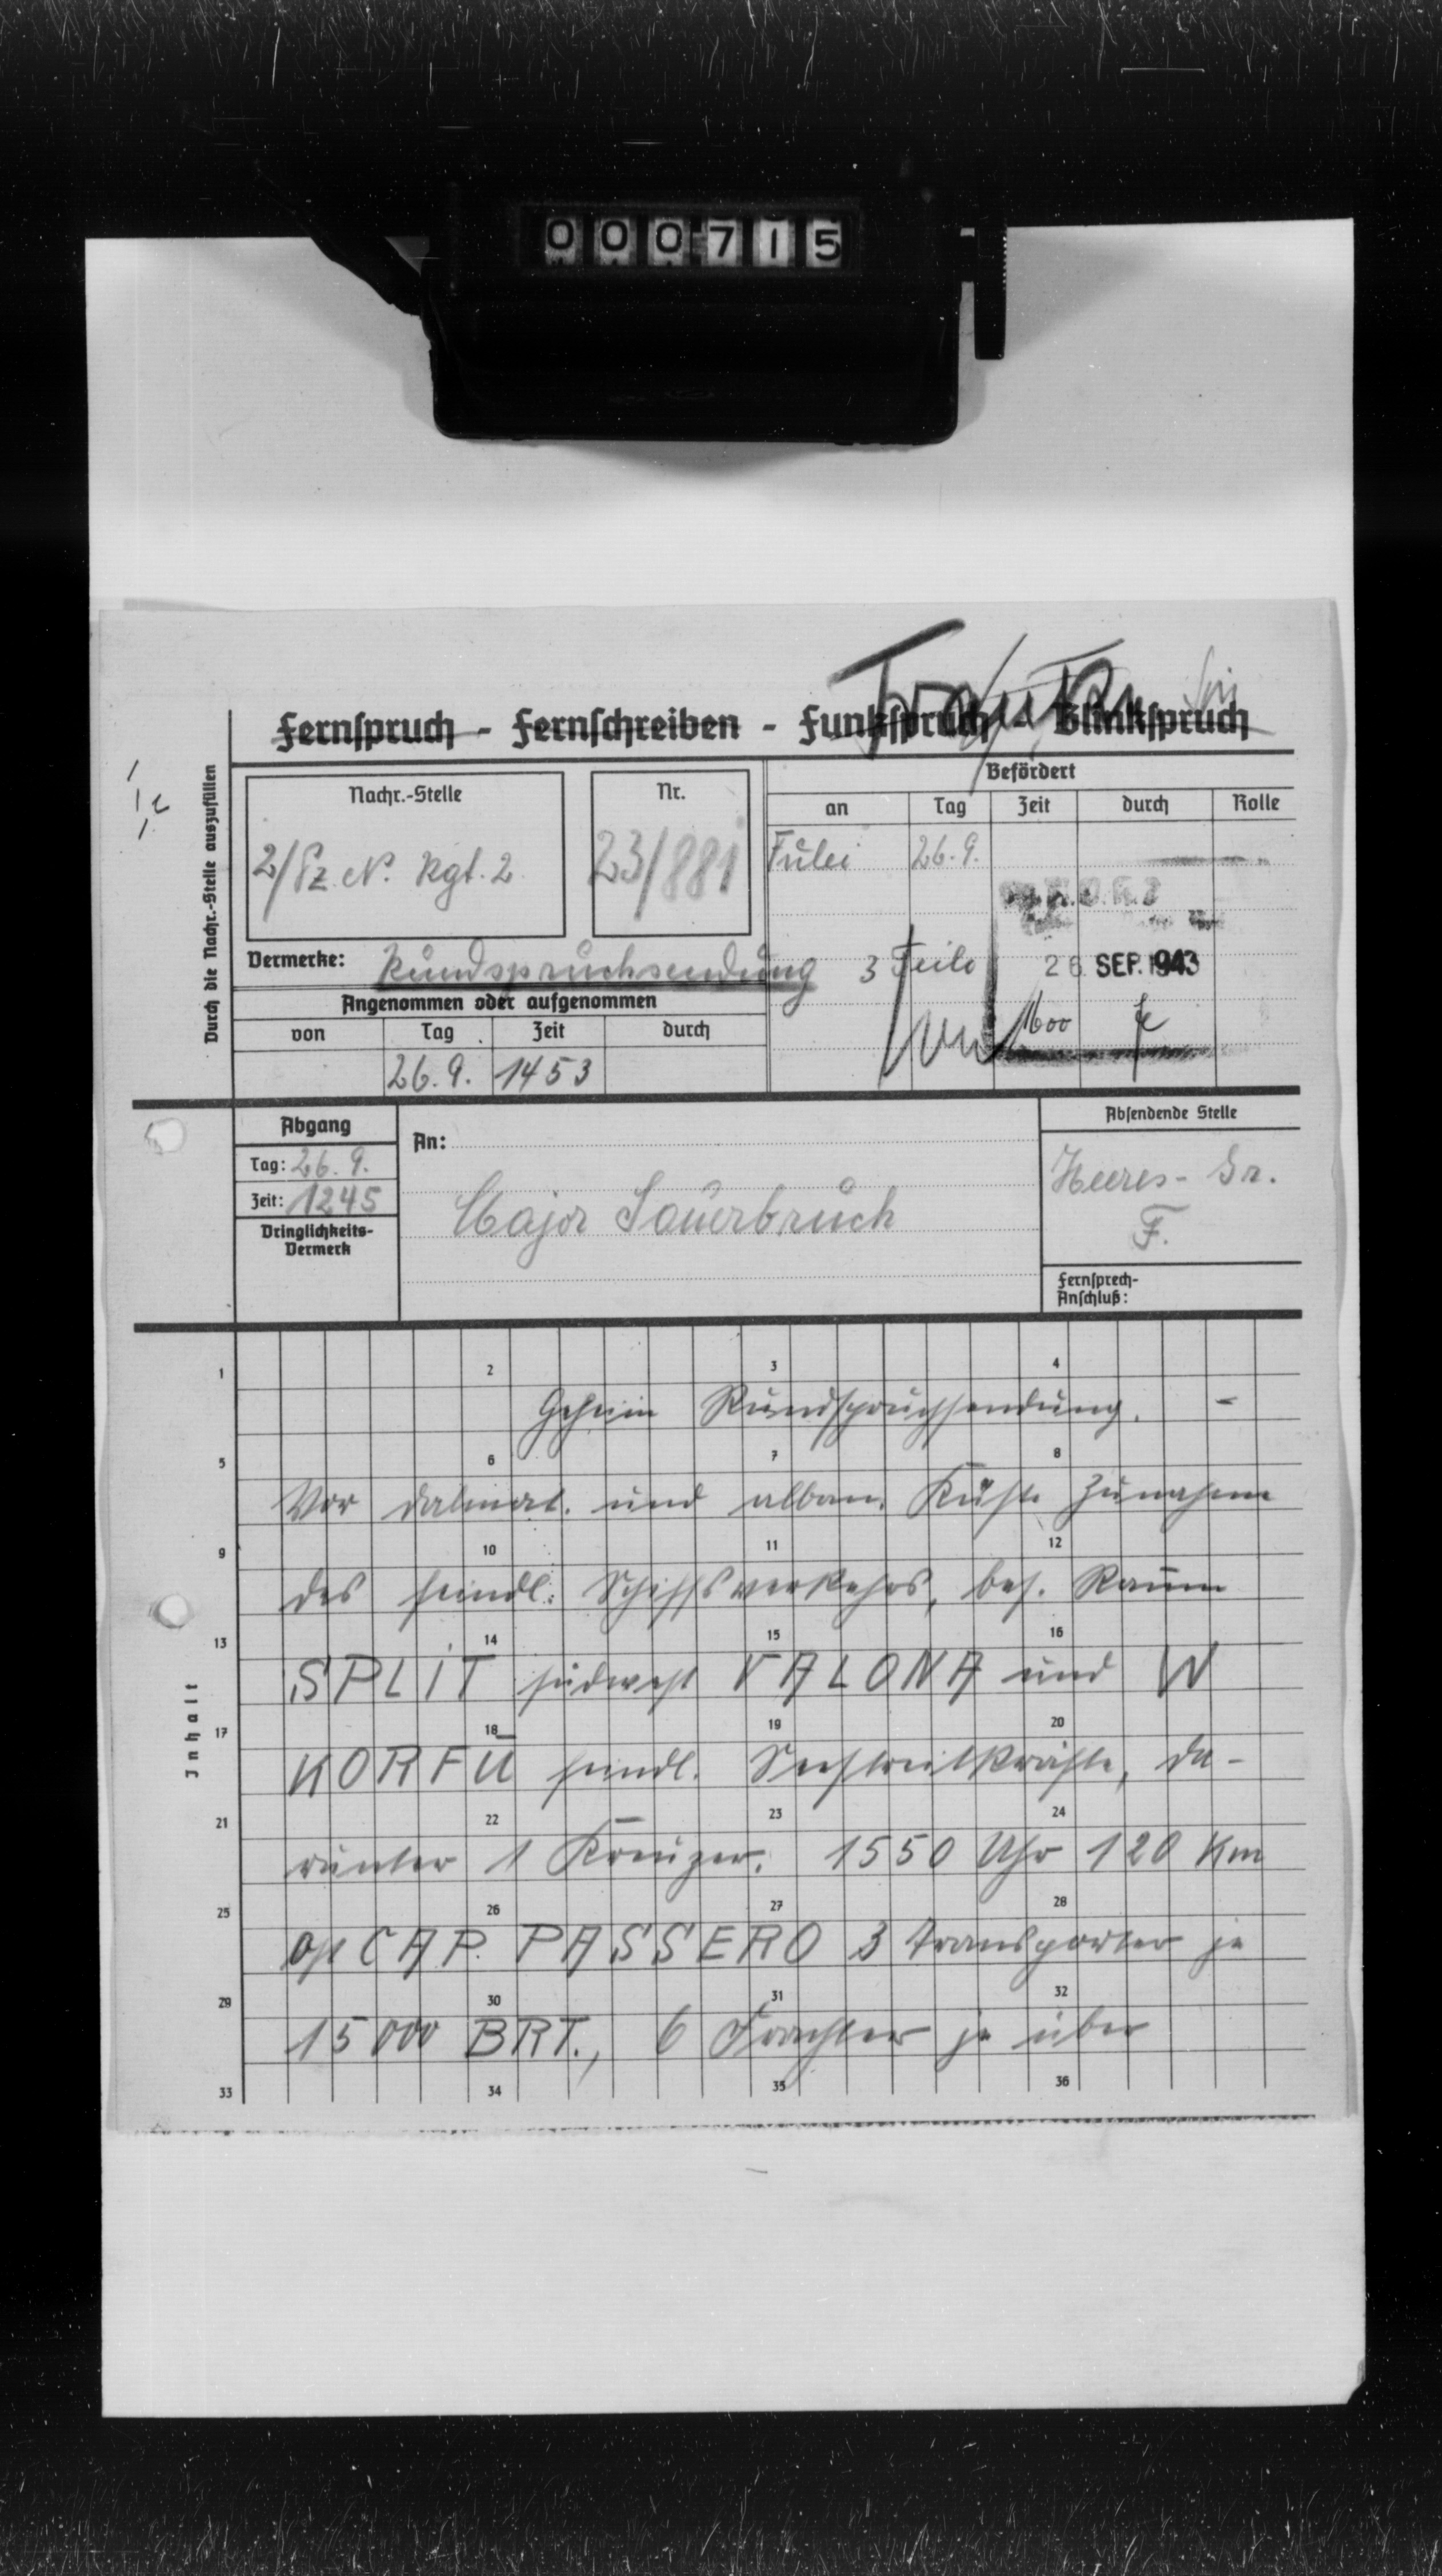 000715
Fernspruch - Fernschreiben - Funkspruch - Blinkspruch
Durch die Nachr.-Stelle auszufüllen
Nachr.-Stelle
2/Pz. N. Rgt. 2
Nr.
23/881
Befördert
an Tag Zeit durch Rolle
Fülei 26.9.
Vermerke: Rundspruchsendung 3 Teile
26. SEP. 1943
1600
Angenommen oder aufgenommen
von Tag Zeit durch
26.9. 1453
Abgang
Tag: 26.9.
Zeit: 1245
Dringlichkeits-
Vermerk
An:
Major Sauerbruch
Absendende Stelle
Heeres-Gr.
F.
Fernsprech-
Anschluß:
Inhalt
1 2 3 4
Geheim Rundspruchsendung. -
5 6 7 8
Vor dalmat. und alban. Küste Zunahme
9 10 11 12
des feindl. Schiffsverkehrs, bes. Raum
13 14 15 16
SPLIT südwest VALONA und W
17 18 19 20
KORFU feindl. Seestreitkräfte, da-
21 22 23 24
runter 1 Kreuzer. 1550 Uhr 120 Km
25 26 27 28
ost CAP. PASSERO 3 Transporter je
29 30 31 32
15000 BRT., 6 Frachter je über
33 34 35 36